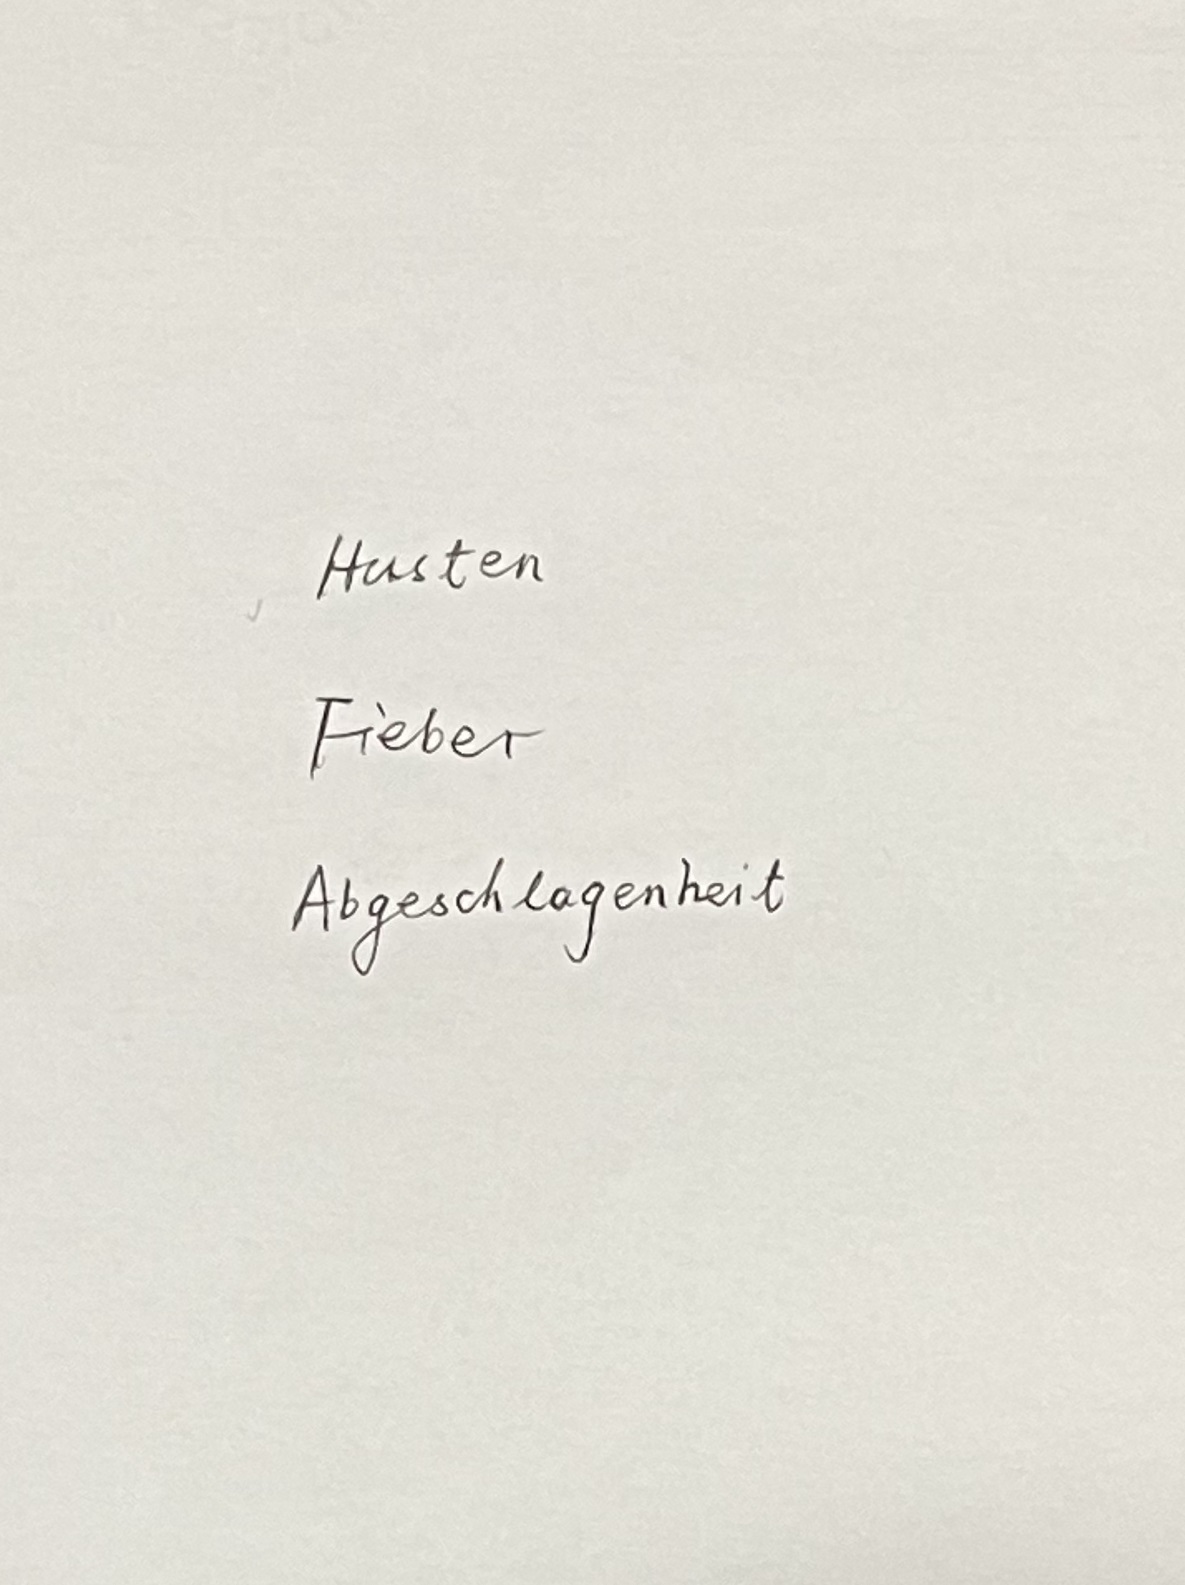 Husten
Fieber
Abgeschlagenheit